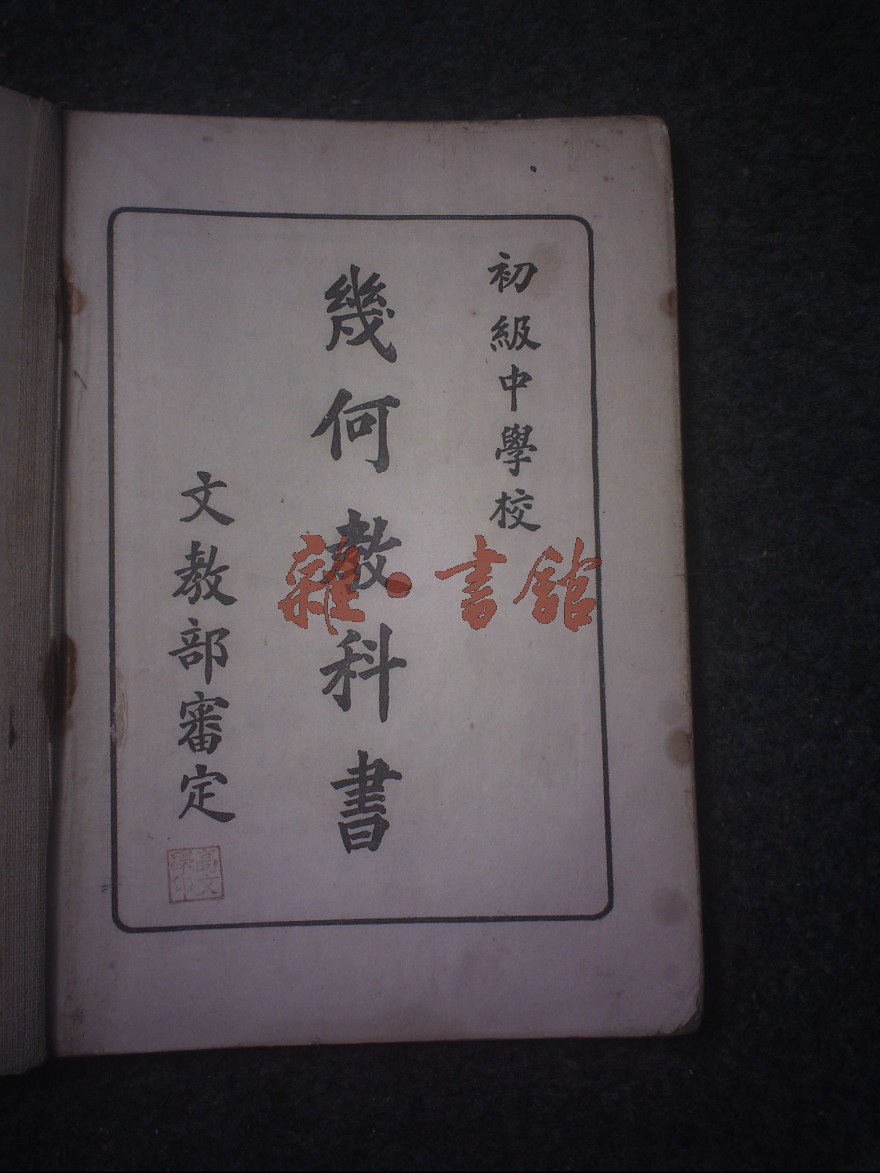 初級中學校
幾何教科書
文教部審定
高文
學印
雜·書館